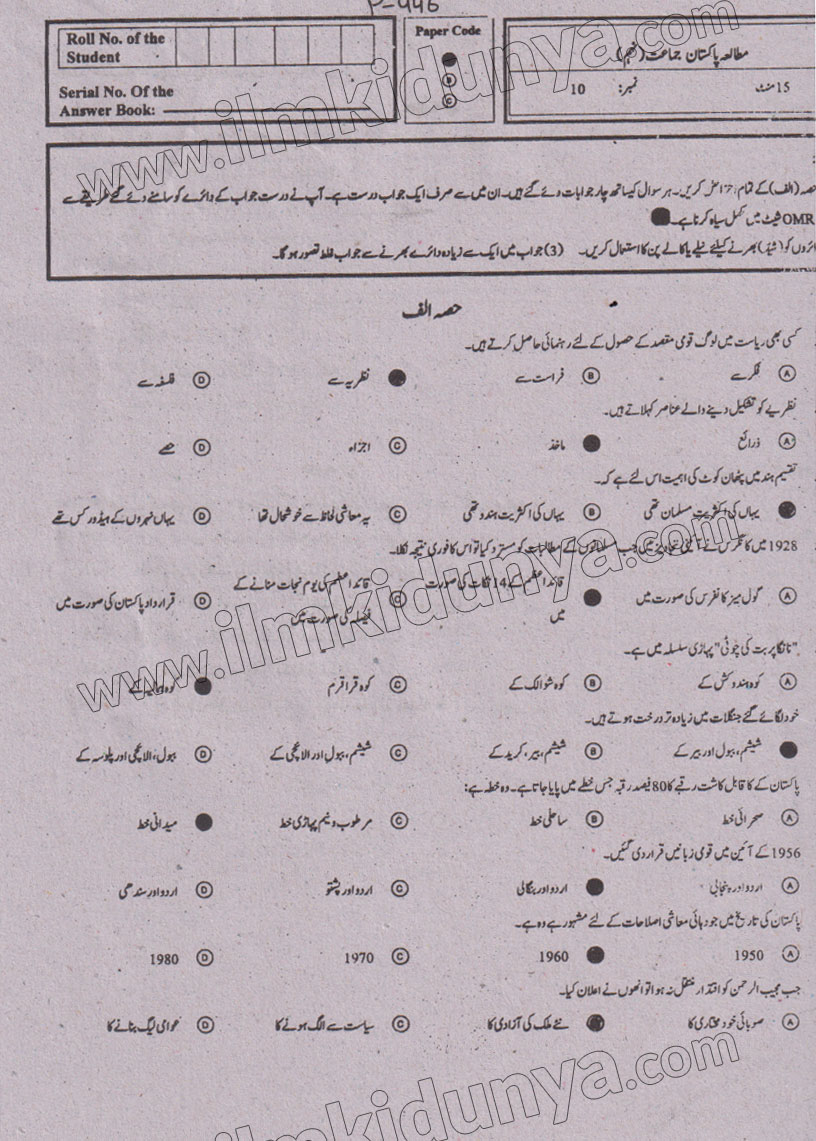 P-446
Roll No. of the
Student
Serial No. Of the
Answer Book:
Paper Code
B
C
مطالعہ پاکستان جماعت (نہم)
15 منٹ نمبر: 10
حصہ (الف) کے تمام حل کریں۔ ہر سوال کیساتھ چار جوابات دئے گئے ہیں۔ ان میں سے صرف ایک جواب درست ہے۔ آپ نے درست جواب کے دائرے کو سامنے دئے گئے طریقے سے
OMR شیٹ میں مکمل سیاہ کرنا ہے۔
ائروں کو (شیڈ) بھرنے کیلئے نیلے یا کالے پن کا استعمال کریں۔ (3) جواب میں ایک سے زیادہ دائرے بھرنے سے جواب غلط تصور ہوگا۔
حصہ الف
کسی بھی ریاست میں لوگ قومی مقصد کے حصول کے لئے رہنمائی حاصل کرتے ہیں۔
A فکر سے B فراست سے نظریہ سے D فلسفہ سے
نظریے کو تشکیل دینے والے عناصر کہلاتے ہیں۔
A ذرائع ماخذ C اجزاء D حصے
تقسیم ہند میں پٹھان کوٹ کی اہمیت اس لئے ہے کہ۔
یہاں کی اکثریت مسلمان تھی B یہاں کی اکثریت ہندو تھی C یہ معاشی لحاظ سے خوشحال تھا D یہاں نہروں کے ہیڈورکس تھے
1928 میں کانگرس نے آئینی تجاویز میں جب مسلمانوں کے مطالبات کو مسترد کیا تو اس کا فوری نتیجہ نکلا۔
A گول میز کانفرس کی صورت میں قائداعظم کے 14 نکات کی صورت میں C قائداعظم کی یوم نجات منانے کے فیصلہ کی صورت میں D قرارداد پاکستان کی صورت میں
"نانگا پربت کی چوٹی" پہاڑی سلسلہ میں ہے۔
A کوہ ہندوکش کے B کوہ شوالک کے C کوہ قراقرم کوہ ہمالیہ کے
خود لگائے گئے جنگلات میں زیادہ تر درخت ہوتے ہیں۔
شیشم، ببول اور بیر کے B شیشم، بیر، کرید کے C شیشم، ببول اور الائچی کے D ببول، الائچی اور پلوسہ کے
پاکستان کے کا قابل کاشت رقبے کا 80 فیصد رقبہ جس خطے میں پایا جاتا ہے۔ وہ خطہ ہے:
A صحرائی خط B ساحلی خط C مرطوب و نیم پہاڑی خط میدانی خط
1956 کے آئین میں قومی زبانیں قرار دی گئیں۔
A اردو اور پنجابی اردو اور بنگالی C اردو اور پشتو D اردو اور سندھی
پاکستان کی تاریخ میں جو دہائی معاشی اصلاحات کے لئے مشہور ہے وہ ہے۔
A 1950 1960 C 1970 D 1980
جب مجیب الرحمن کو اقتدار منتقل نہ ہوا تو انھوں نے اعلان کیا۔
A صوبائی خود مختاری کا نئے ملک کی آزادی کا C سیاست سے الگ ہونے کا D عوامی لیگ بنانے کا
www.ilmkidunya.com
www.ilmkidunya.com
www.ilmkidunya.com